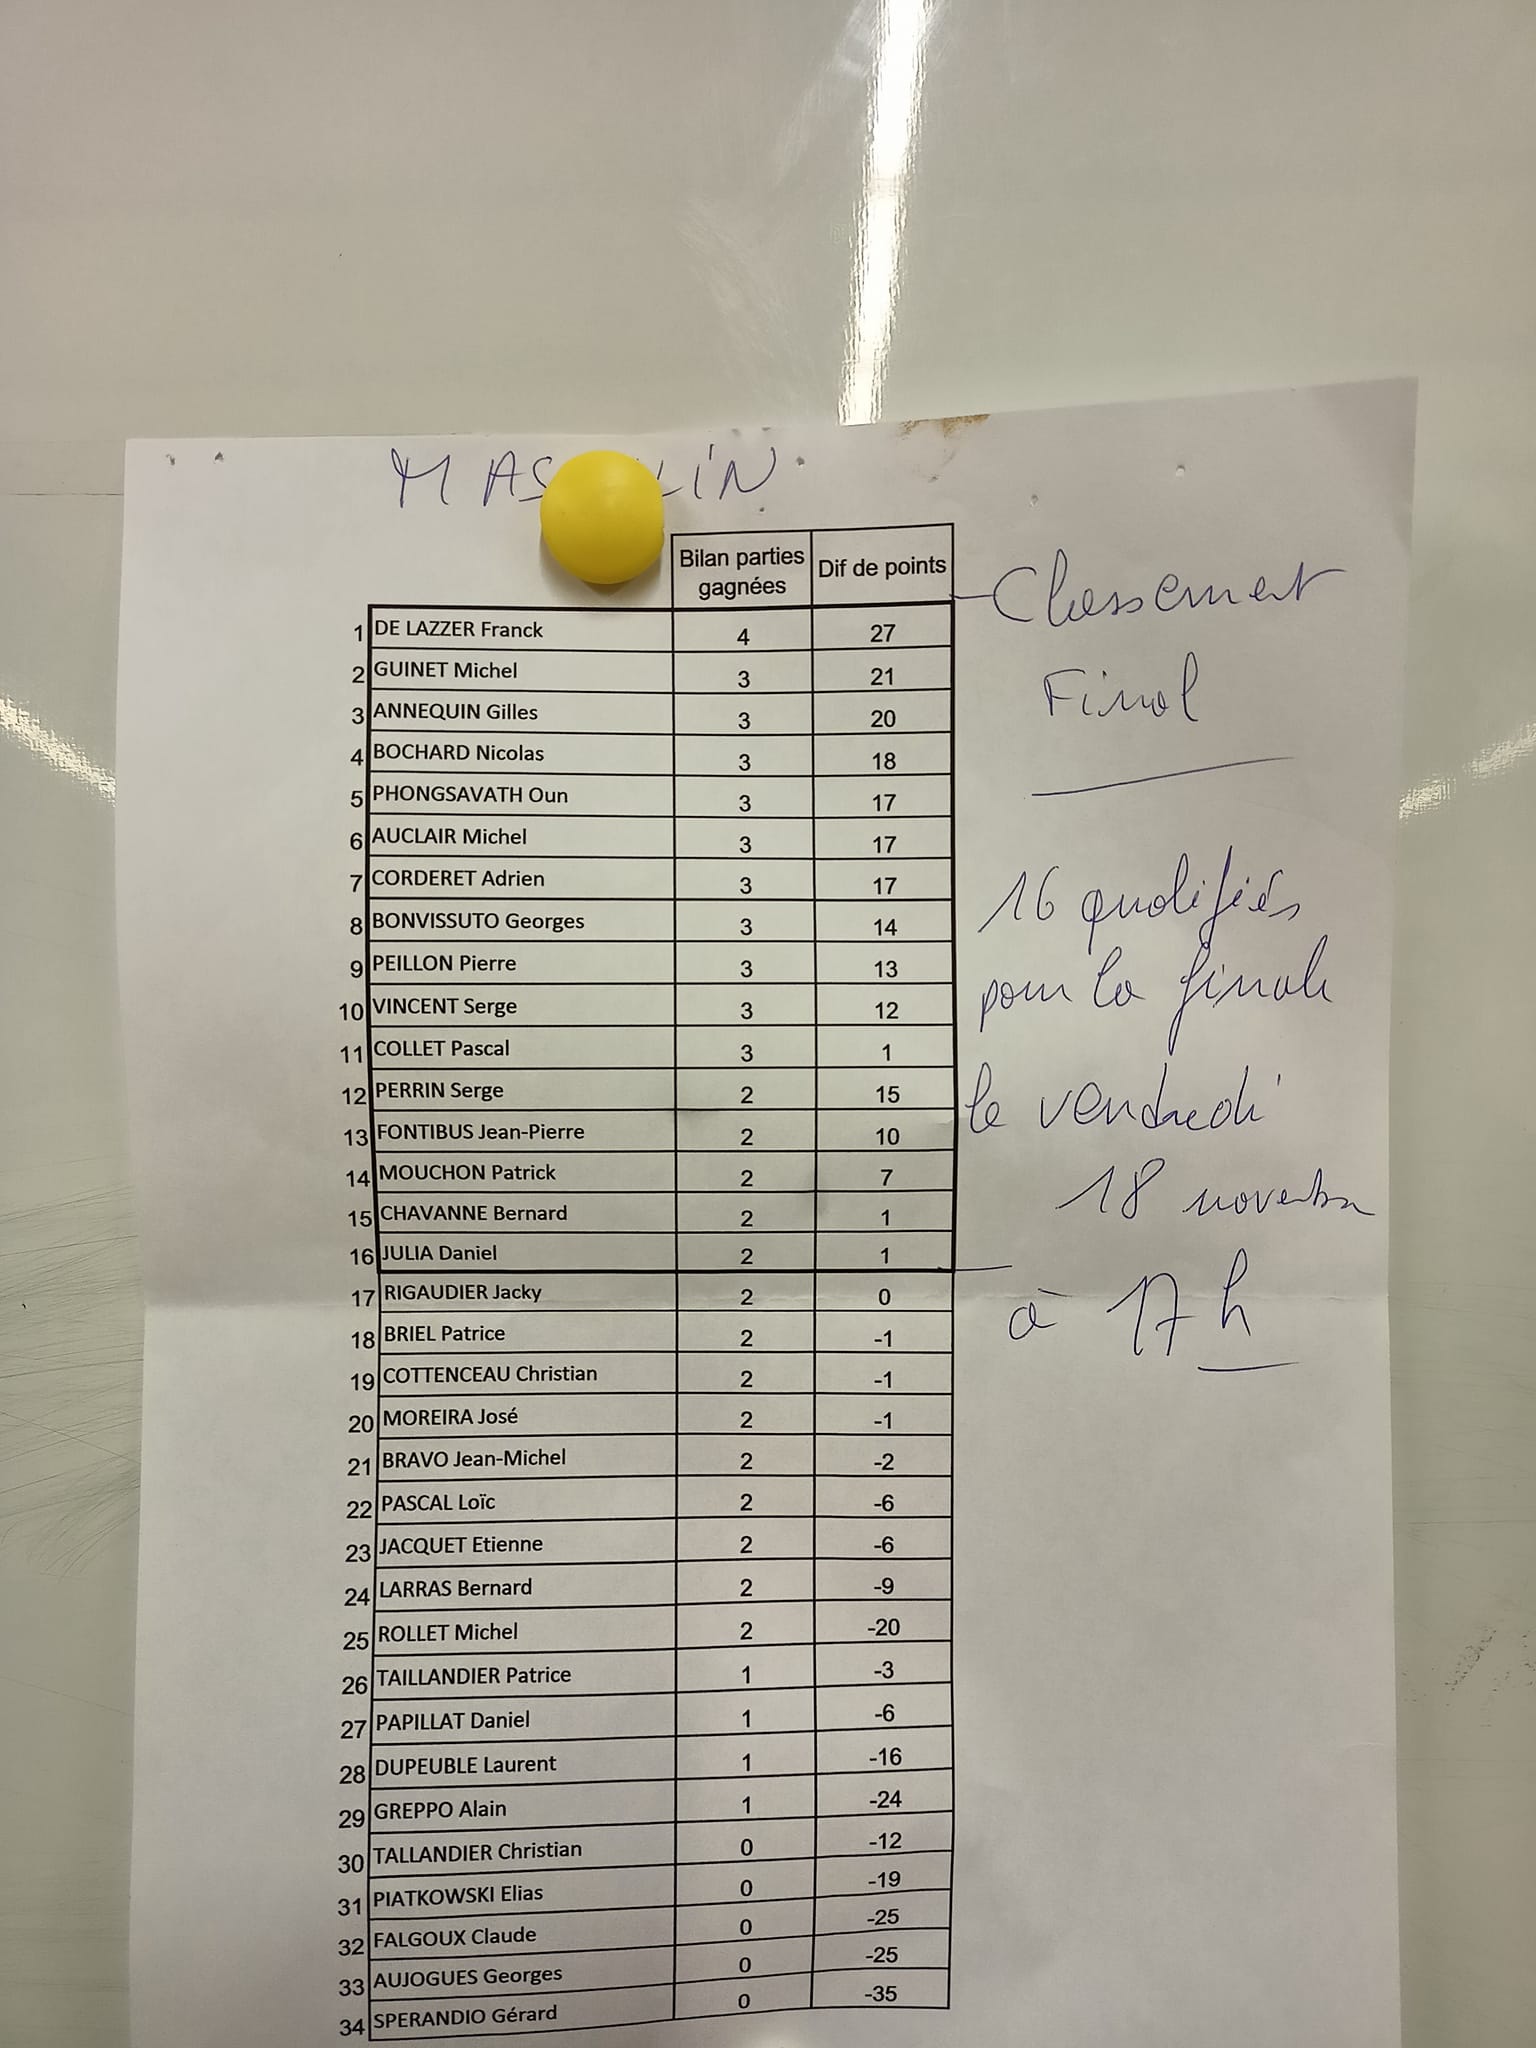 MAS LIN
Bilan parties gagnées Dif de points
1 DE LAZZER Franck 4 27
2 GUINET Michel 3 21
3 ANNEQUIN Gilles 3 20
4 BOCHARD Nicolas 3 18
5 PHONGSAVATH Oun 3 17
6 AUCLAIR Michel 3 17
7 CORDERET Adrien 3 17
8 BONVISSUTO Georges 3 14
9 PEILLON Pierre 3 13
10 VINCENT Serge 3 12
11 COLLET Pascal 3 1
12 PERRIN Serge 2 15
13 FONTIBUS Jean-Pierre 2 10
14 MOUCHON Patrick 2 7
15 CHAVANNE Bernard 2 1
16 JULIA Daniel 2 1
17 RIGAUDIER Jacky 2 0
18 BRIEL Patrice 2 -1
19 COTTENCEAU Christian 2 -1
20 MOREIRA José 2 -1
21 BRAVO Jean-Michel 2 -2
22 PASCAL Loïc 2 -6
23 JACQUET Etienne 2 -6
24 LARRAS Bernard 2 -9
25 ROLLET Michel 2 -20
26 TAILLANDIER Patrice 1 -3
27 PAPILLAT Daniel 1 -6
28 DUPEUBLE Laurent 1 -16
29 GREPPO Alain 1 -24
30 TALLANDIER Christian 0 -12
31 PIATKOWSKI Elias 0 -19
32 FALGOUX Claude 0 -25
33 AUJOGUES Georges 0 -25
34 SPERANDIO Gérard 0 -35
Classement
Final
16 qualifiés
pour la finale
le vendredi
18 novembre
à 17h